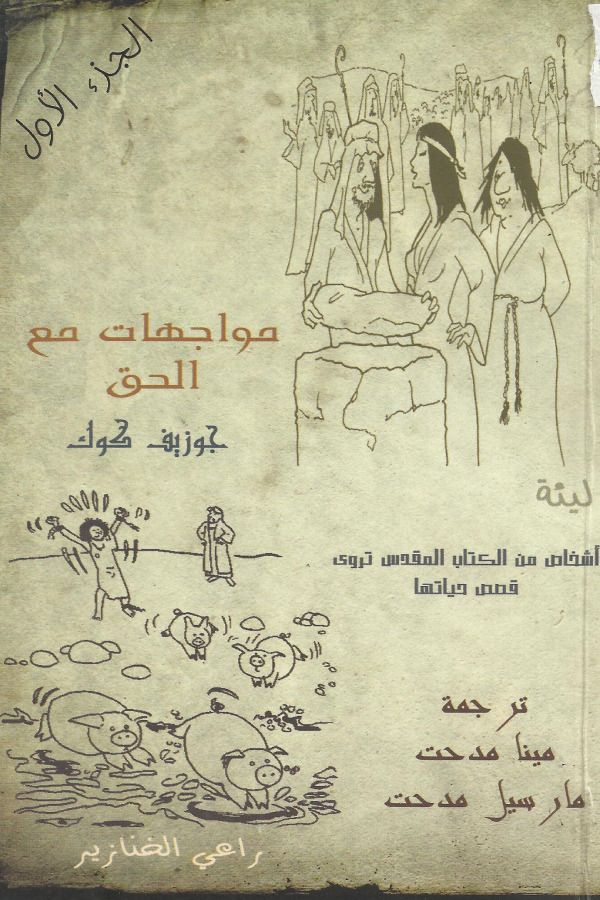 الجزء الأول
مواجهات مع
الحق
جوزيف كوك
ليئة
أشخاص من الكتاب المقدس تروى
قصص حياتها
ترجمة
مينا مدحت
مارسيل مدحت
راعي الخنازير